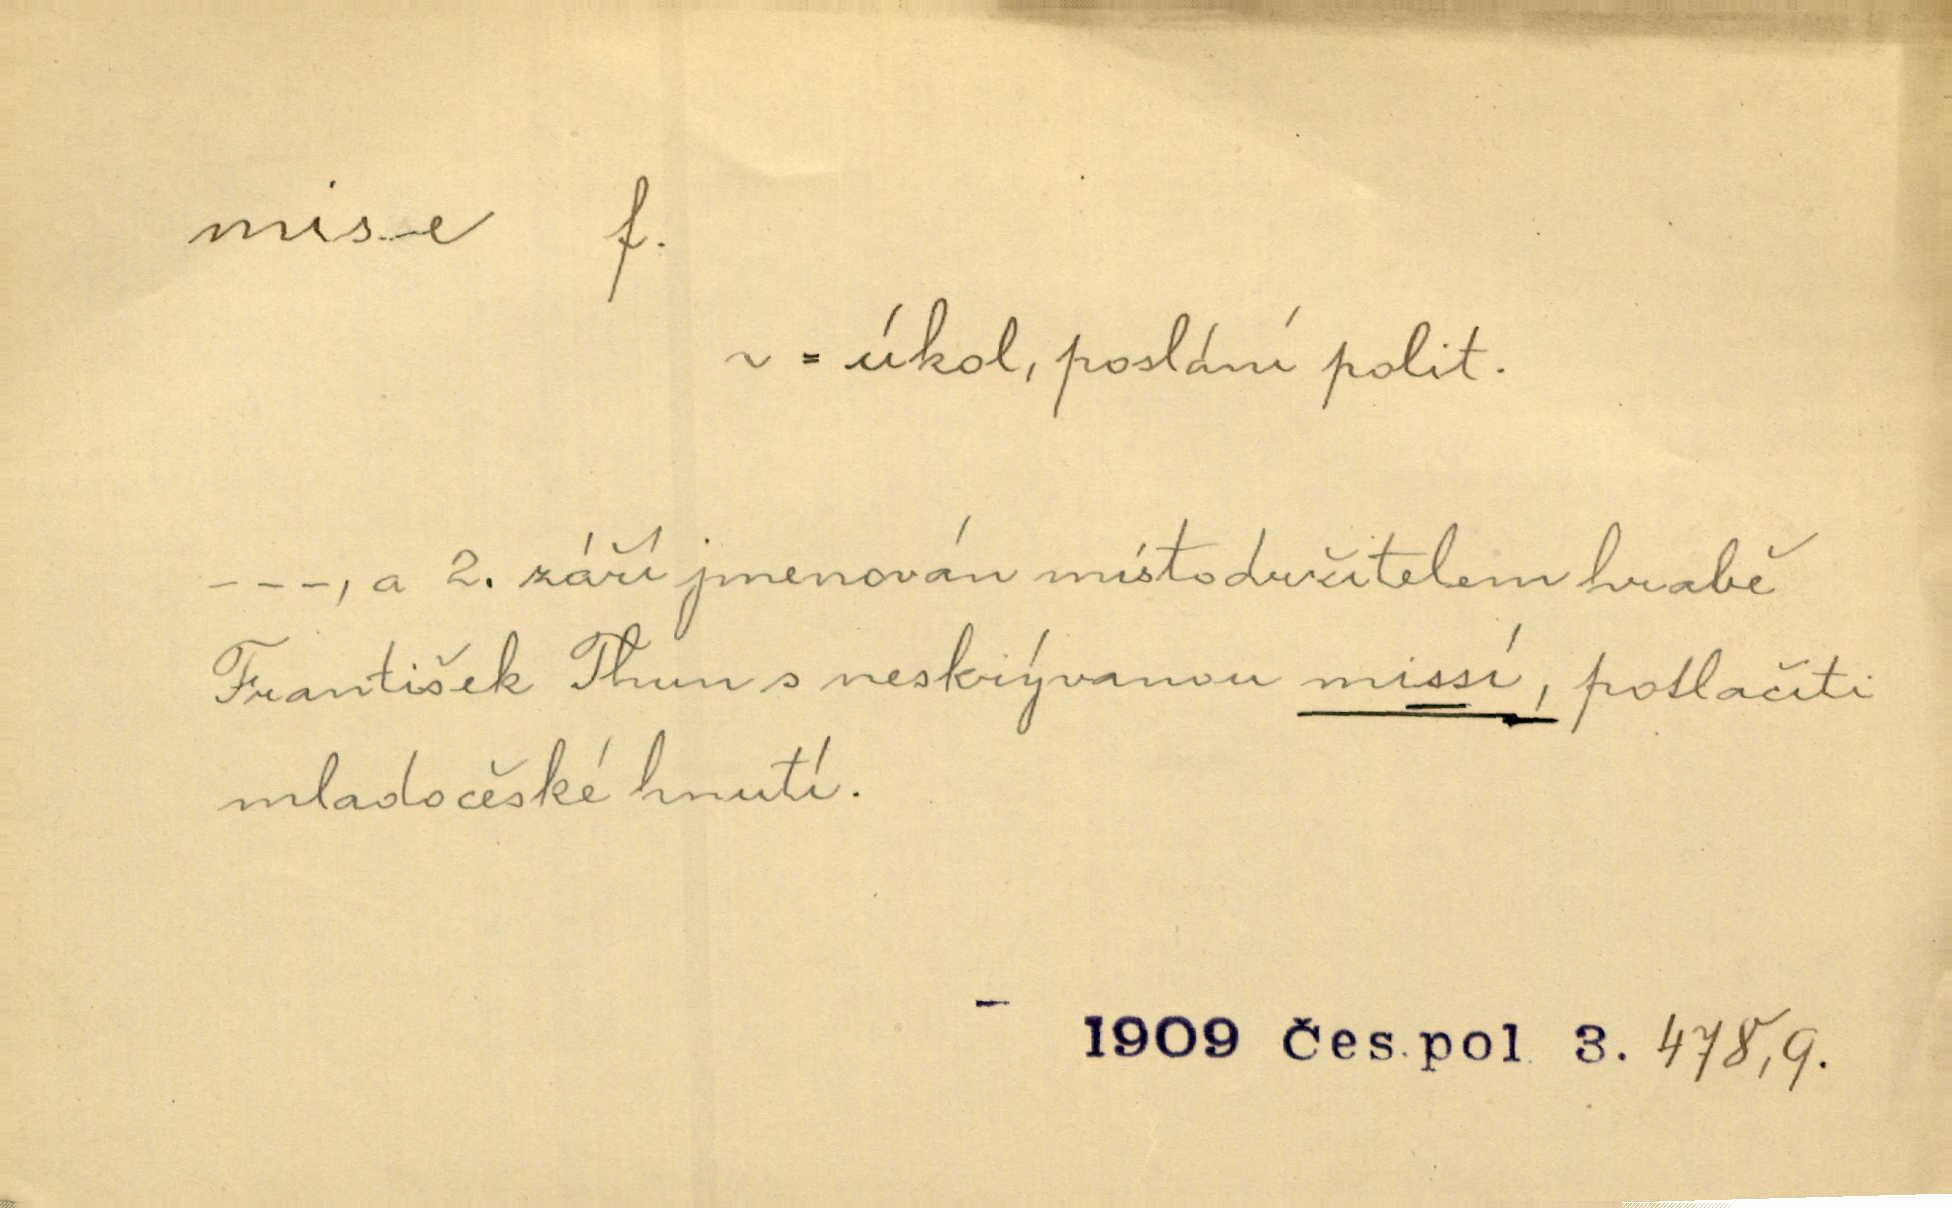 mis-e f.
~ = úkol, poslání polit.
---, a 2. září jmenován místodržitelem hrabě
František Thun s neskrývanou missí, potlačiti
mladočeské hnutí.
– 1909 Čes. pol. 3. 478,9.